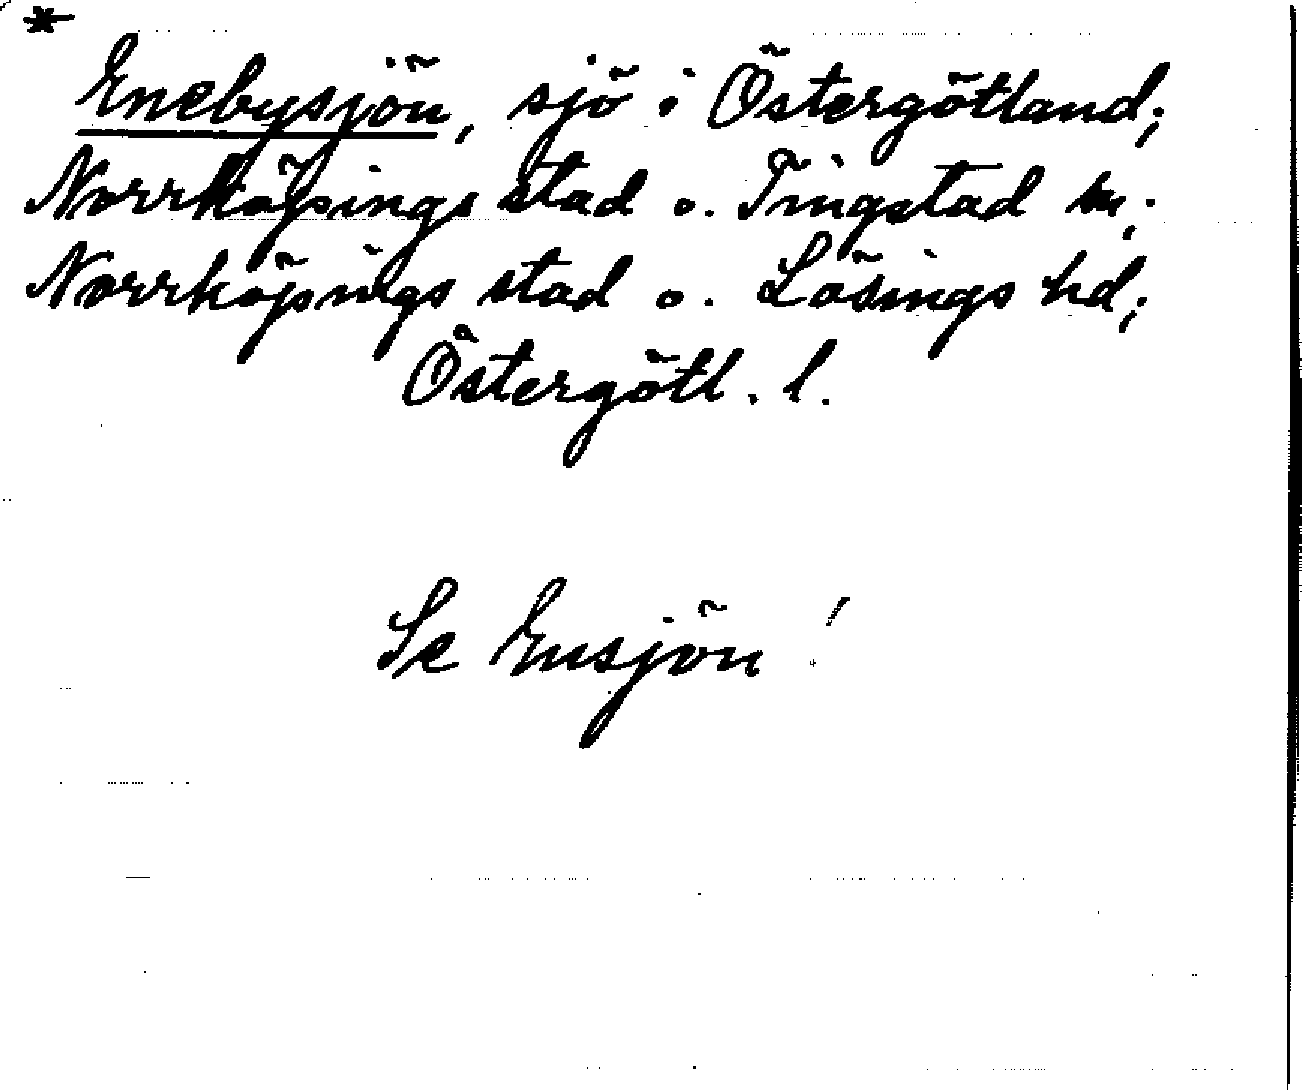 *
Enebysjön, sjö i Östergötland;
Norrköpings stad o. Tingstad sn;
Norrköpings stad o. Lösings hd;
Östergötl. l.
Se Ensjön!